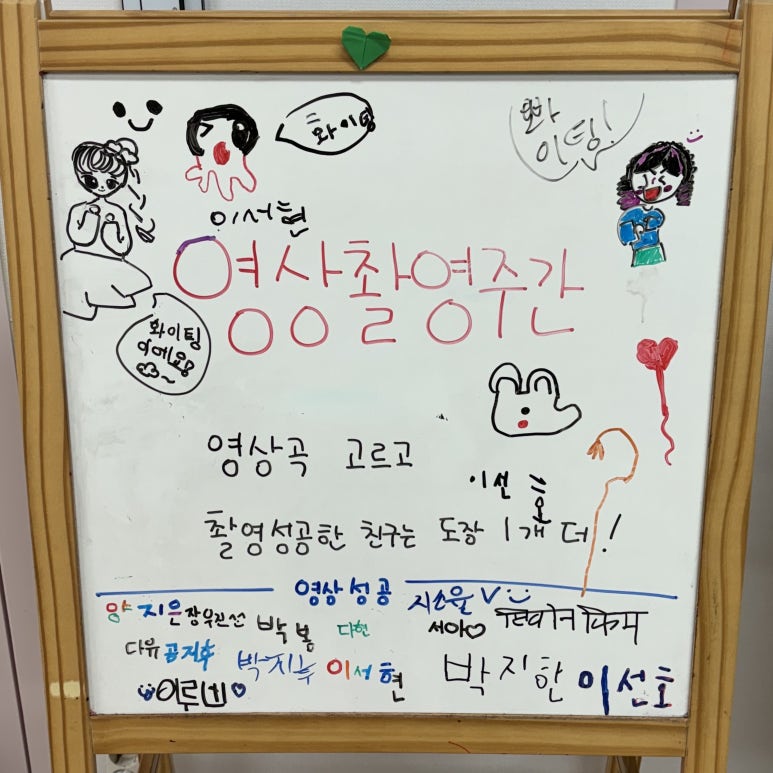 화이팅
화
이팅!
이서현
영상촬영주간
화이팅
이에요!
영상곡 고르고
이선호
촬영성공한 친구는 도장 1개 더!
영상성공
지은 박봄 다현 서아♡
다유 공지후 박지후 이서현 박지한 이선호
이루비